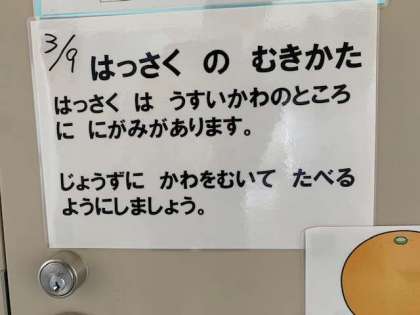 3/9
はっさく の むきかた
はっさく は うすいかわのところ
に にがみがあります。
じょうずに かわをむいて たべる
ようにしましょう。